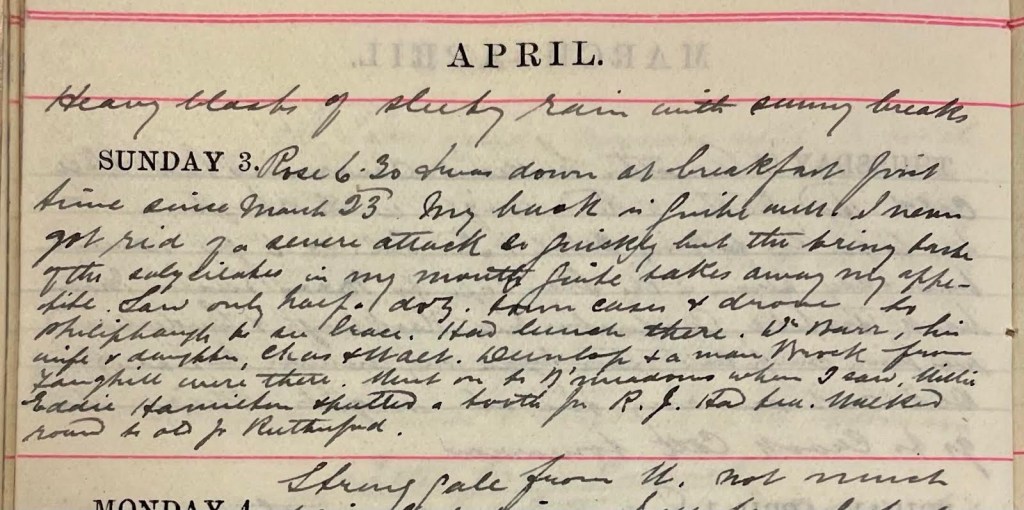 APRIL.
Heavy blasts of sleety rain with sunny breaks
SUNDAY 3. Rose 6.30 & was down at breakfast first
time since March 23 My back is quite well. I never
got rid of a severe attack so quickly but the briny taste
of the salycilates in my mouth quite takes away my appe-
tite. Saw only half. doz. town cases & drove to
Philiphaugh to see Grace. Had lunch there. Dr Barr, his
wife & daughter, Chas & Walt. Dunlop & a man Brock from
were there. Went on to B'meadows when I saw, Willie
Eddie Hamilton & pulled a tooth for R. J. Had tea. Walked
round to old Jo Rutherford.
Strong gale from W. not much
MONDAY 4.